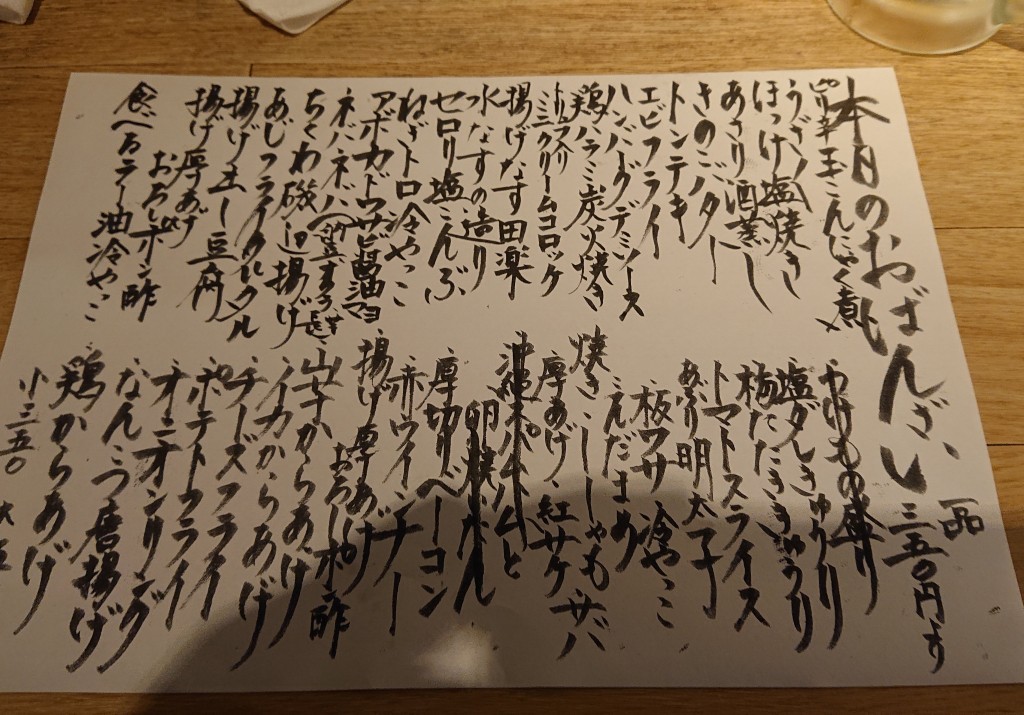 本日のおばんざい 一品 三五〇円より
ピリ辛玉こんにゃく煮
うざく
ほっけ塩焼き
あさり酒蒸し
きのこバター
トンテキ
エビフライ
ハンバーグデミソース
鶏ハラミ炭火焼き
トリュフ入り
ミニクリームコロッケ
揚げなす田楽
水なすの造り
セロリ塩こんぶ
ねぎトロ冷やっこ
アボカドワサビ醤油マヨ
ネバネバ
ちくわ磯辺揚げ
あじフライ タルタル
揚げ出し豆腐
揚げ厚あげ
おろしポン酢
食べるラー油冷やっこ
つけもの盛り
塩ダレきゅうり
梅たたききゅうり
トマトスライス
あぶり明太子
板ワサ 冷やっこ
えだまめ
焼き ししゃも サバ
厚あげ 紅サケ
卵焼
厚切りベーコン
赤ウインナー
揚げ厚あげ
おろしポン酢
山芋からあげ
イカからあげ
チーズフライ
ポテトフライ
オニオンリング
なんこつ唐揚げ
鶏からあげ
小三五〇 大五